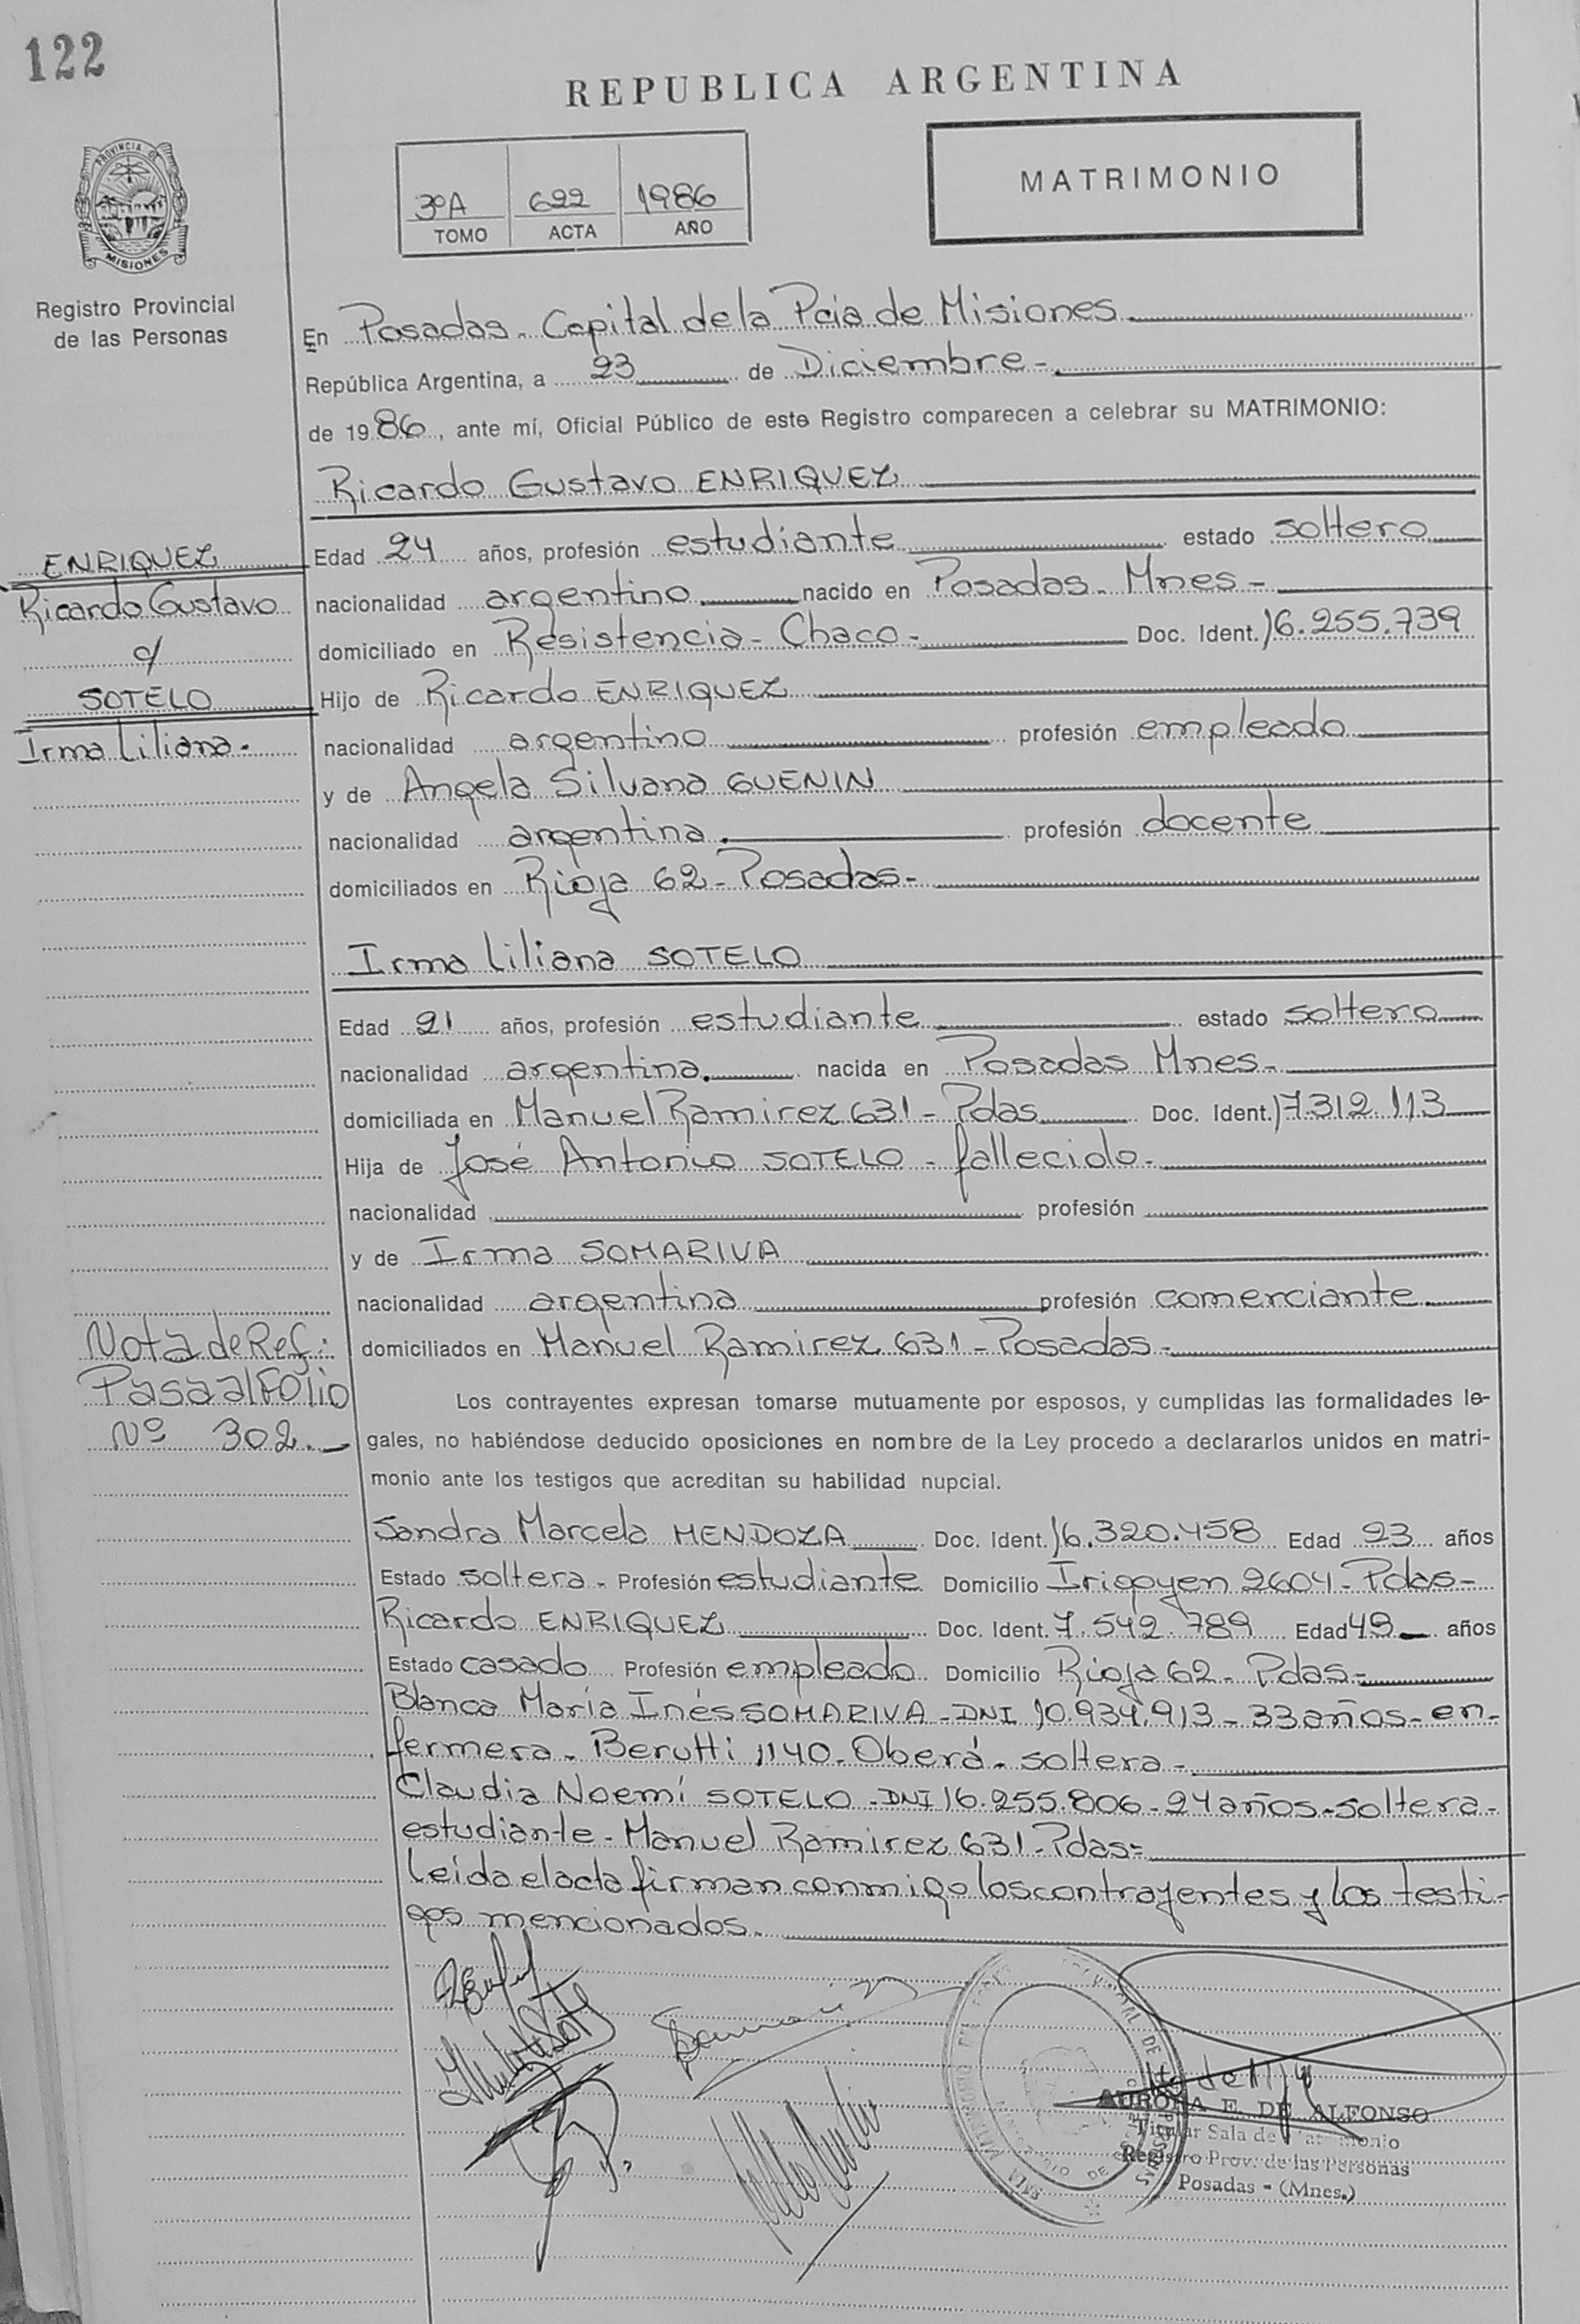 122
REPUBLICA ARGENTINA
PROVINCIA DE
MISIONES
3ºA 622 1986
TOMO ACTA AÑO
MATRIMONIO
Registro Provincial
de las Personas
En Posadas - Capital de la Pcia de Misiones
República Argentina, a 23 de Diciembre -
de 1986, ante mí, Oficial Público de este Registro comparecen a celebrar su MATRIMONIO:
Ricardo Gustavo ENRIQUEZ
ENRIQUEZ
Ricardo Gustavo
c/
SOTELO
Irma Liliana -
Edad 24 años, profesión estudiante estado soltero
nacionalidad argentino nacido en Posadas - Mnes -
domiciliado en Resistencia - Chaco - Doc. Ident. 16.255.739
Hijo de Ricardo ENRIQUEZ
nacionalidad argentino profesión empleado
y de Angela Silvana GUENIN
nacionalidad argentina. profesión docente
domiciliados en Rioja 62 - Posadas -
Irma Liliana SOTELO
Edad 21 años, profesión estudiante estado soltera
nacionalidad argentina. nacida en Posadas Mnes -
domiciliada en Manuel Ramirez 631 - Pdas Doc. Ident. 17.312.113
Hija de José Antonio SOTELO - fallecido -
nacionalidad profesión
y de Irma SOMARIVA
nacionalidad argentina profesión comerciante.
domiciliados en Manuel Ramirez 631 - Posadas -
Nota de Ref.:
Pasa al Folio
Nº 302. -
Los contrayentes expresan tomarse mutuamente por esposos, y cumplidas las formalidades le-
gales, no habiéndose deducido oposiciones en nombre de la Ley procedo a declararlos unidos en matri-
monio ante los testigos que acreditan su habilidad nupcial.
Sandra Marcela MENDOZA Doc. Ident. 16.320.458 Edad 23 años
Estado soltera - Profesión estudiante Domicilio Irigoyen 2604 - Pdas -
Ricardo ENRIQUEZ Doc. Ident. 7.542.789 Edad 49 años
Estado casado Profesión empleado Domicilio Rioja 62 - Pdas -
Blanca María Inés SOMARIVA - DNI 10.934.913 - 33 años - en-
fermera - Berutti 1140 - Oberá - soltera -
Claudia Noemí SOTELO - DNI 16.255.806 - 24 años - soltera -
estudiante - Manuel Ramirez 631 - Pdas =
Leída el acta firman conmigo los contrayentes y los testi-
gos mencionados.
AURORA E. DE ALFONSO
Titular Sala de Matrimonio
Registro Prov. de las Personas
Posadas - (Mnes.)